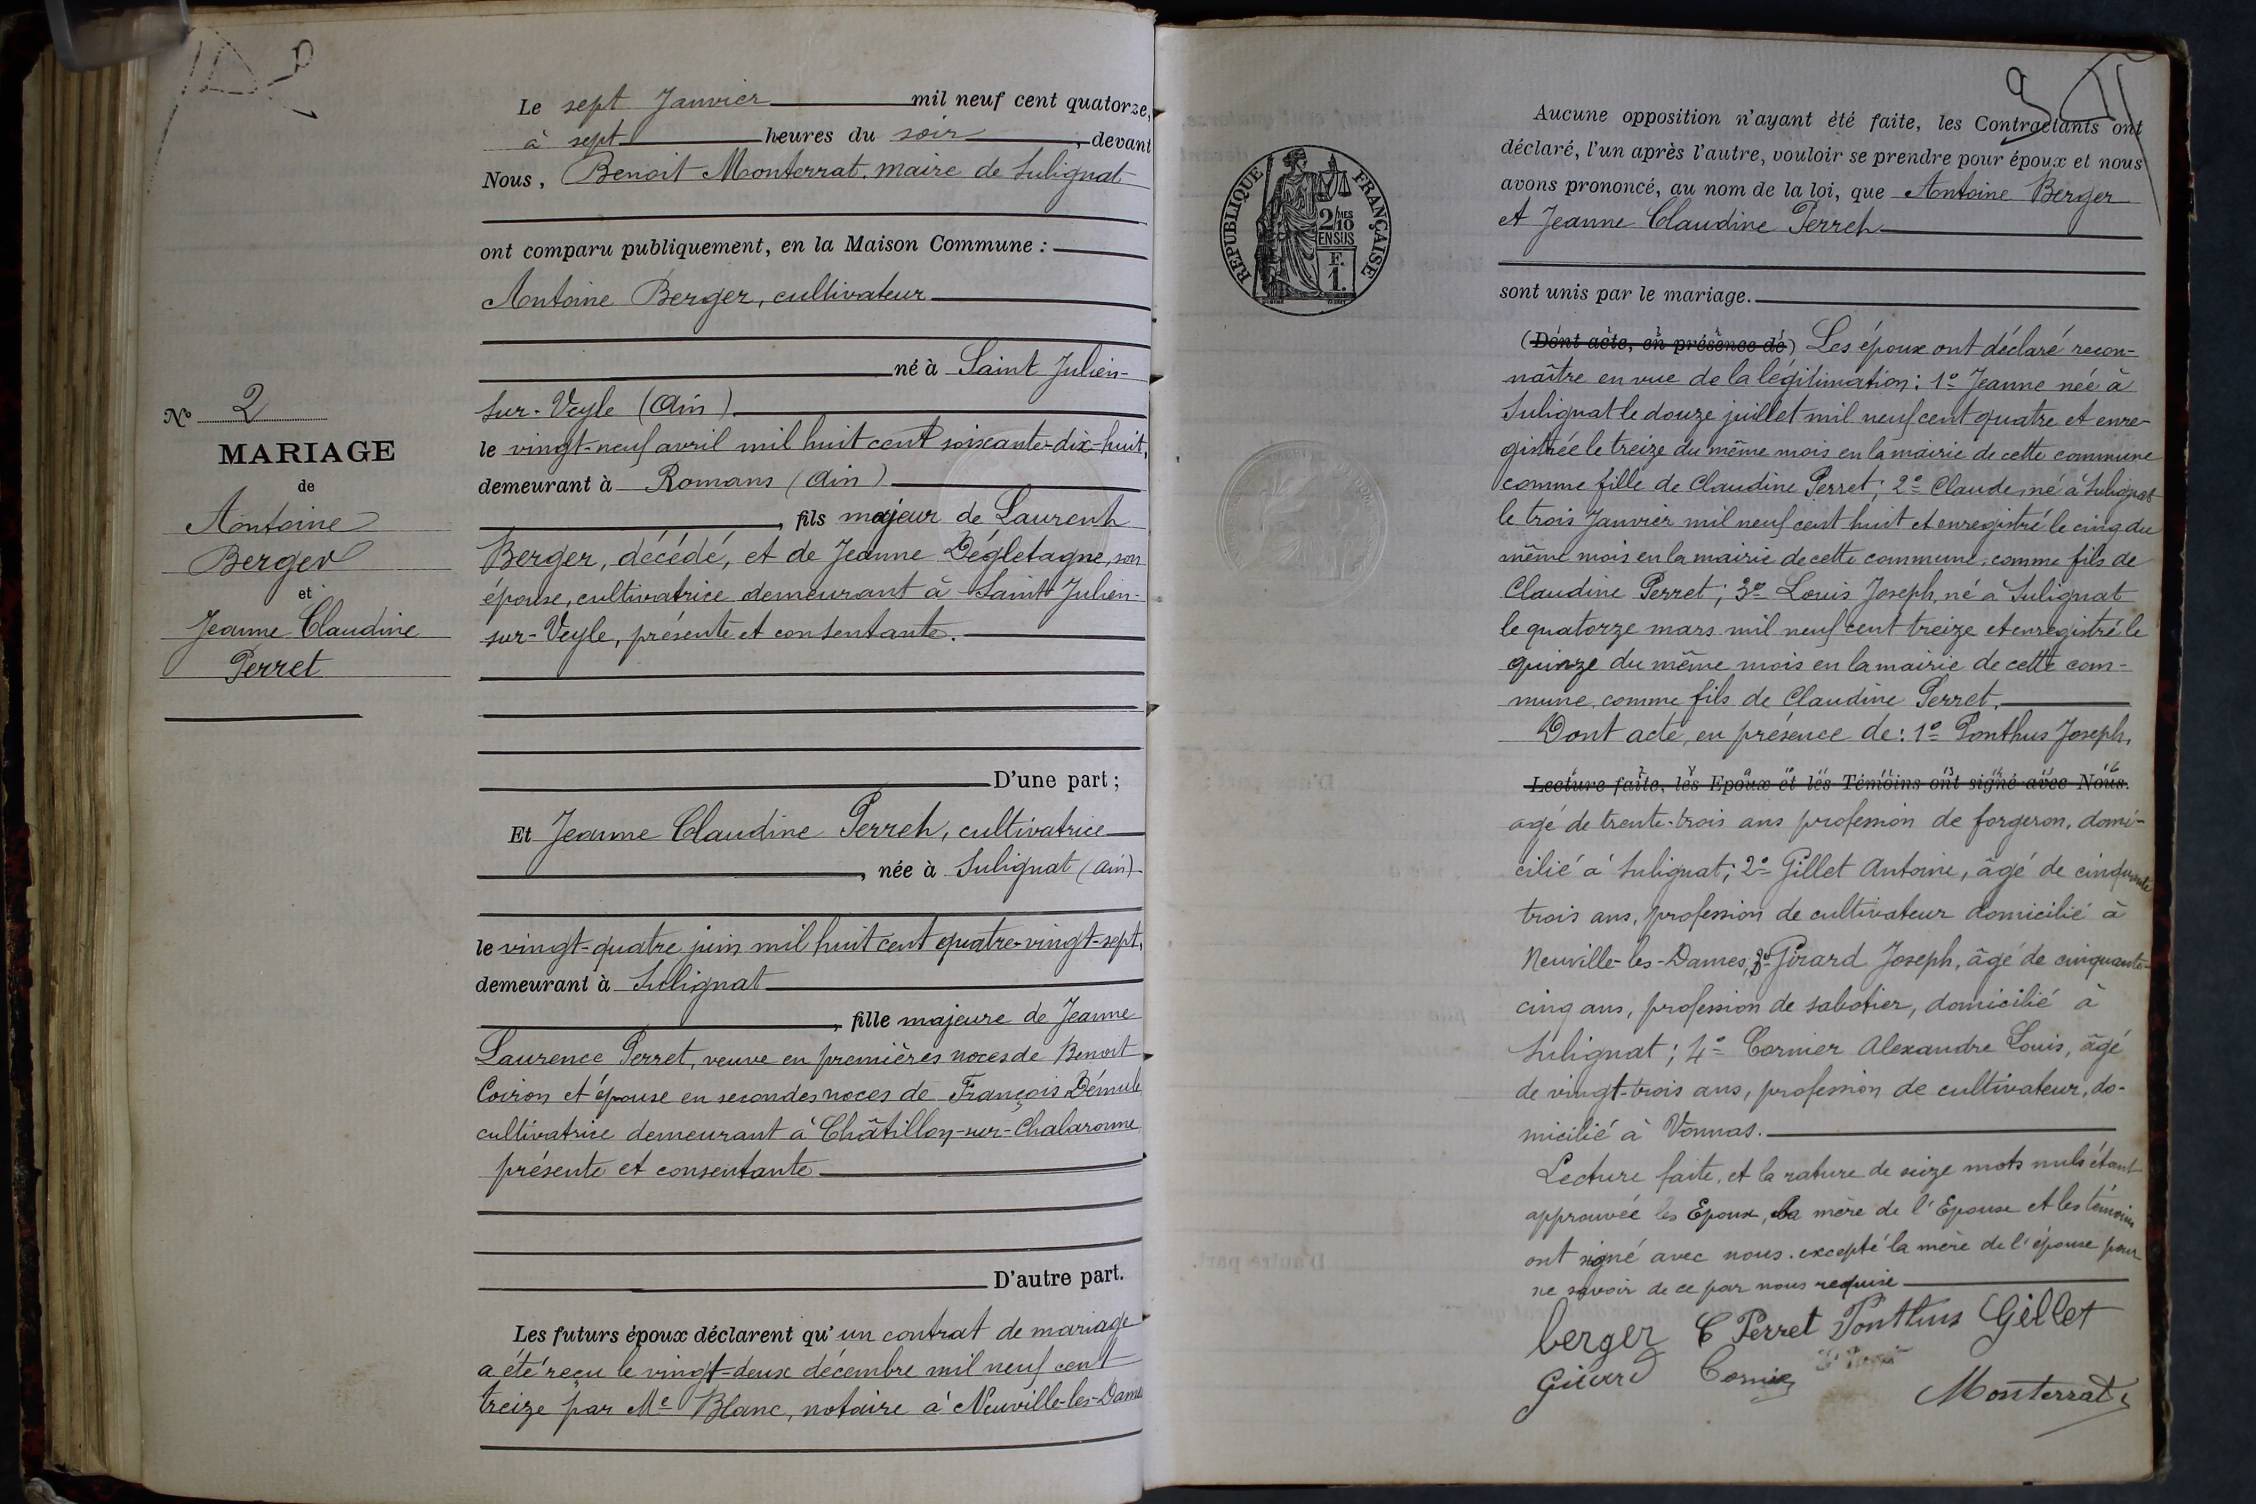 Le sept Janvier mil neuf cent quatorze,
à sept heures du soir, devant
Nous, Benoit Monterrat, maire de Sulignat
ont comparu publiquement, en la Maison Commune :
Antoine Berger, cultivateur
né à Saint Julien-
sur-Veyle (Ain)
le vingt-neuf avril mil huit cent soixante-dix-huit,
demeurant à Romans (Ain)
, fils majeur de Laurent
Berger, décédé, et de Jeanne Dégletagne, son
épouse, cultivatrice demeurant à Saint Julien-
sur-Veyle, présente et consentante.
D'une part ;
No 2
MARIAGE
de
Antoine
Berger
et
Jeanne Claudine
Perret
Et Jeanne Claudine Perret, cultivatrice
, née à Sulignat (Ain)
le vingt-quatre juin mil huit cent quatre-vingt-sept,
demeurant à Sulignat
, fille majeure de Jeanne
Laurence Perret, veuve en premières noces de Benoit
Coiron et épouse en secondes noces de François Démule
cultivatrice demeurant à Châtillon-sur-Chalaronne
présente et consentante
D'autre part.
Les futurs époux déclarent qu'un contrat de mariage
a été reçu le vingt-deux décembre mil neuf cent
treize par Me Blanc, notaire à Neuville-les-Dames
9
REPUBLIQUE FRANÇAISE
2/10 MES
EN SUS
F.
1.
Aucune opposition n'ayant été faite, les Contractants ont
déclaré, l'un après l'autre, vouloir se prendre pour époux et nous
avons prononcé, au nom de la loi, que Antoine Berger
et Jeanne Claudine Perret
sont unis par le mariage.
(Dont acte, en présence de) Les époux ont déclaré recon-
naître en vue de la légitimation : 1º Jeanne née à
Sulignat le douze juillet mil neuf cent quatre et enre-
gistrée le treize du même mois en la mairie de cette commune
comme fille de Claudine Perret ; 2º Claude, né à Sulignat
le trois Janvier mil neuf cent huit et enregistré le cinq du
même mois en la mairie de cette commune, comme fils de
Claudine Perret ; 3º Louis Joseph, né à Sulignat
le quatorze mars mil neuf cent treize et enregistré le
quinze du même mois en la mairie de cette com-
mune, comme fils de Claudine Perret.
Dont acte, en présence de : 1º Ponthus Joseph,
Lecture faite, les Epoux et les Témoins ont signé avec Nous.
agé de trente-trois ans profession de forgeron, domi-
cilié à Sulignat ; 2º Gillet Antoine, âgé de cinquante
trois ans, profession de cultivateur domicilié à
Neuville-les-Dames ; 3º Girard Joseph, âgé de cinquante-
cinq ans, profession de sabotier, domicilié à
Sulignat ; 4º Cornier Alexandre Louis, âgé
de vingt-trois ans, profession de cultivateur, do-
micilié à Vonnas.
Lecture faite, et la rature de seize mots nuls étant
approuvée les Epoux, la mère de l'Epouse et les témoins
ont signé avec nous, excepté la mère de l'épouse pour
ne savoir de ce par nous requise
berger C Perret Ponthus Gillet
Girard Cornier
Monterrat